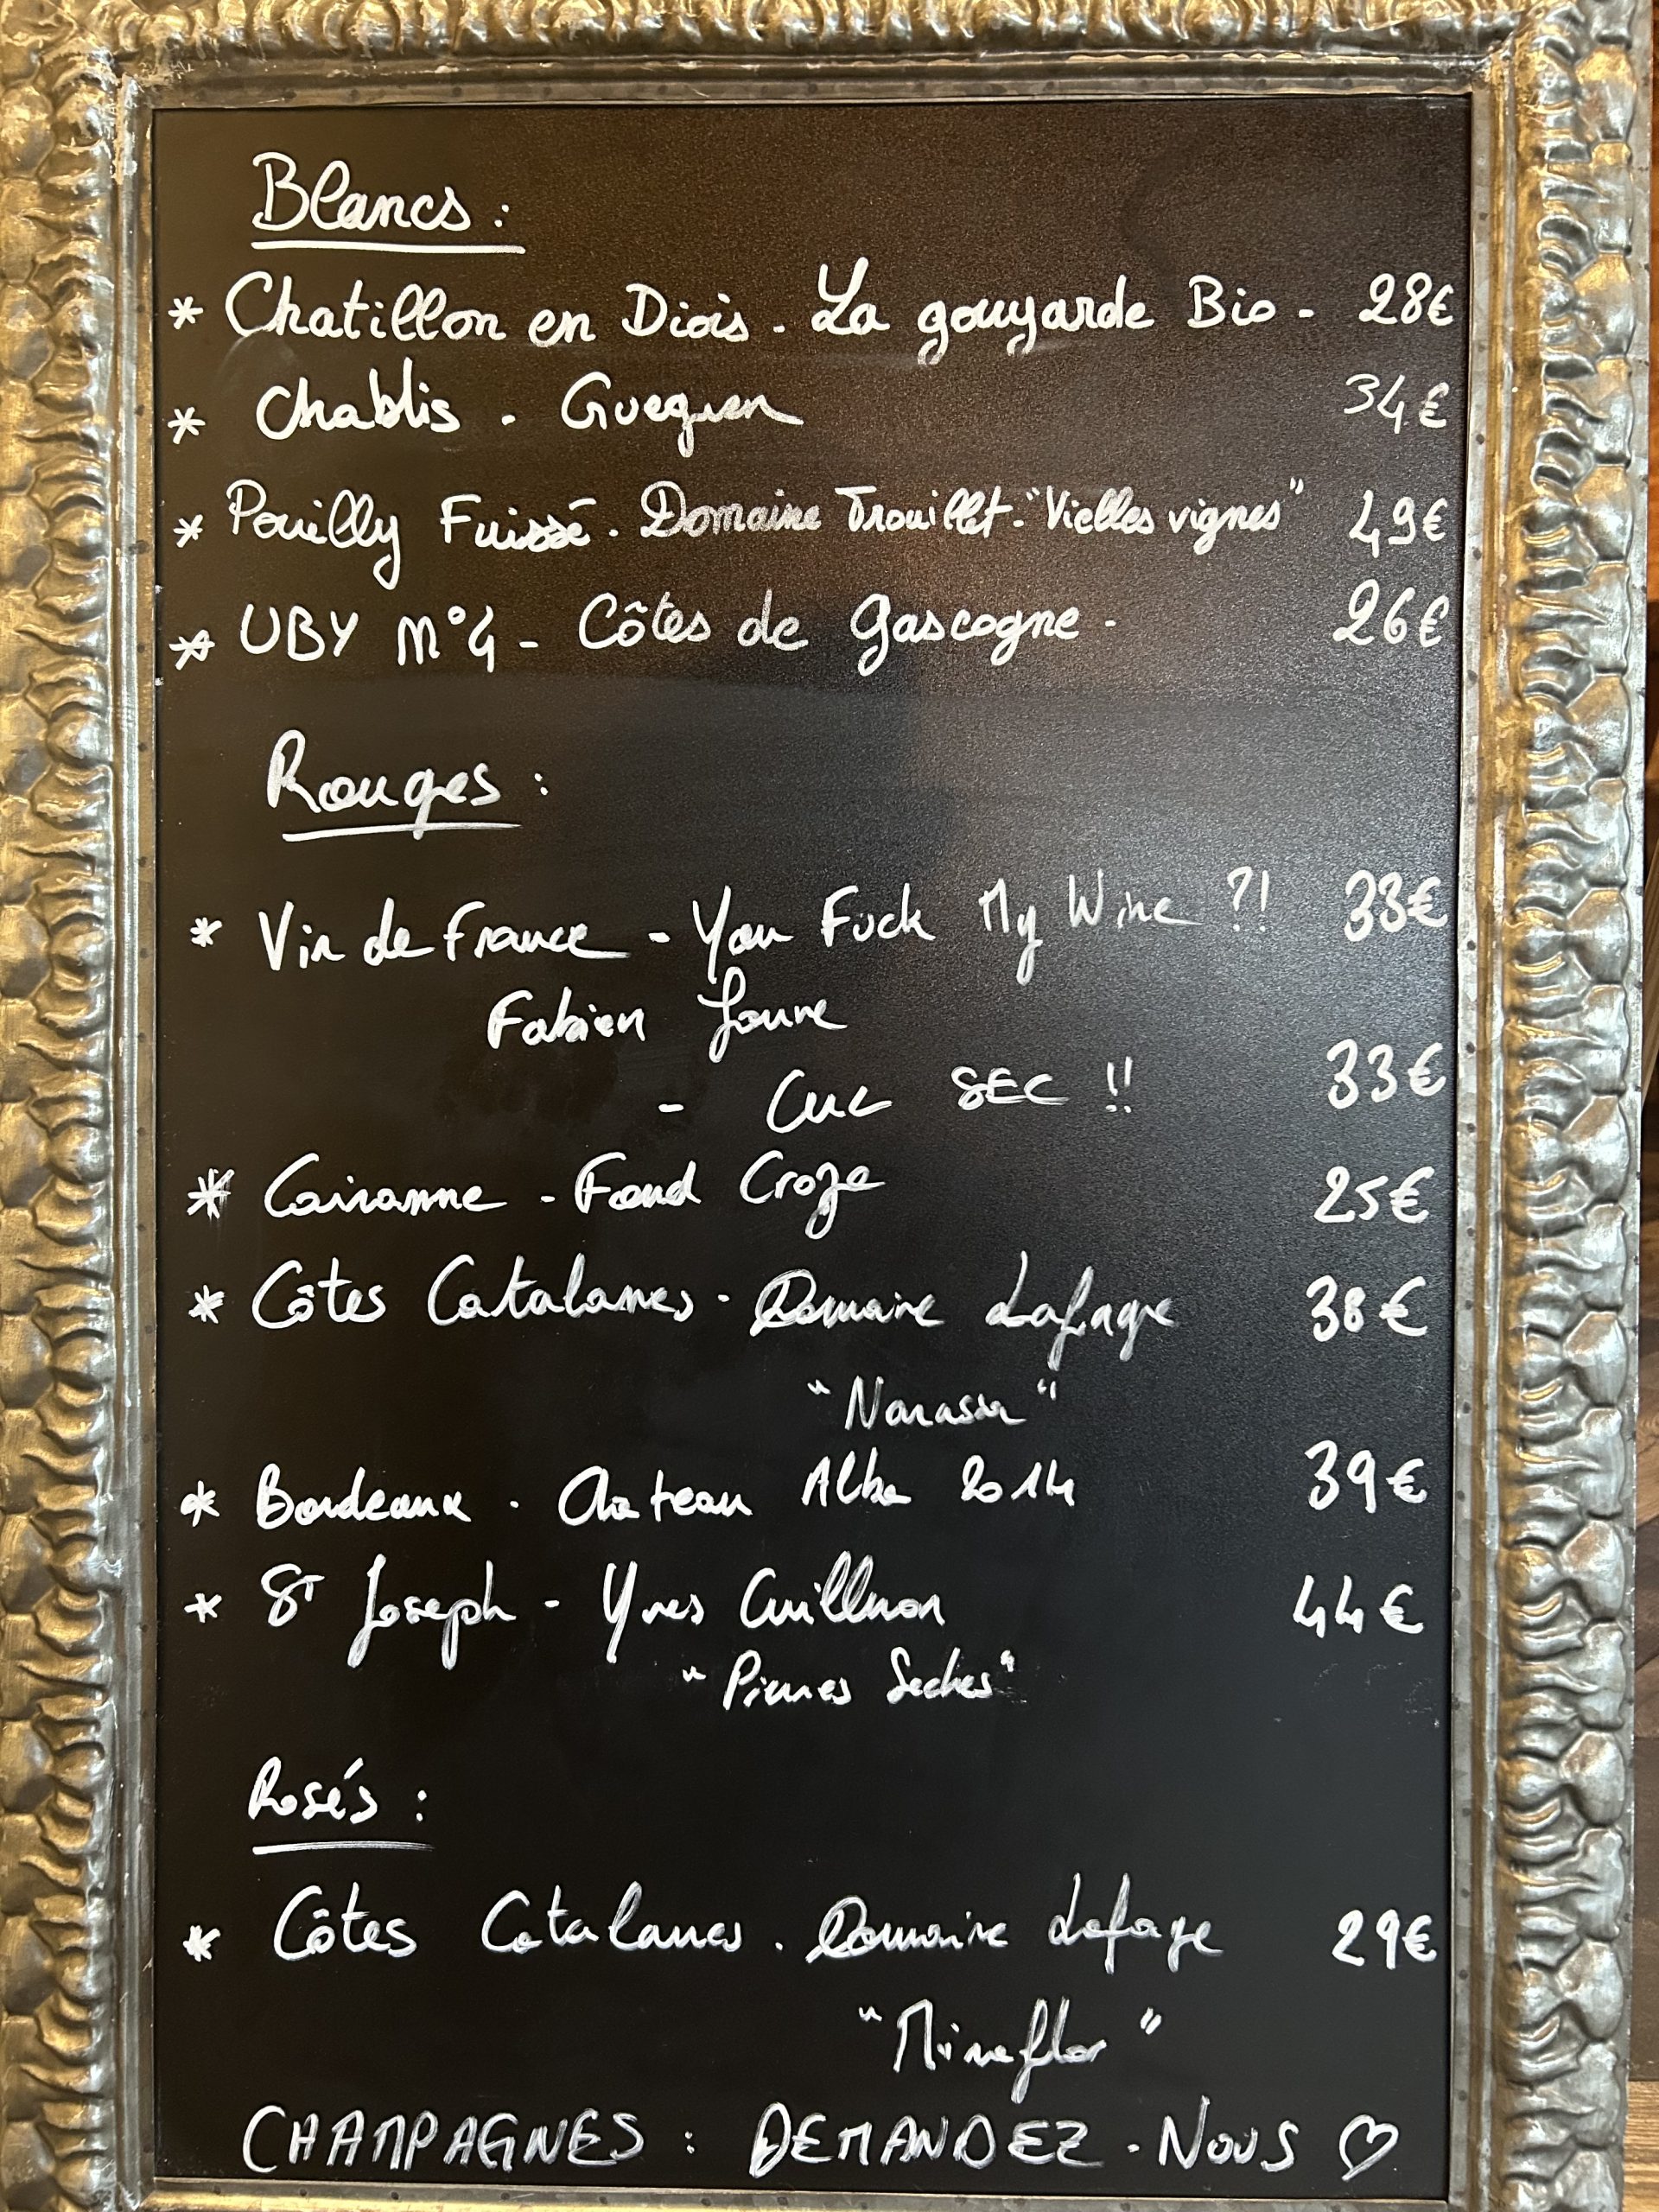 Blancs :
* Chatillon en Diois - La gouyarde Bio - 28€
* Chablis - Gueguen 34€
* Pouilly Fuissé - Domaine Trouillet - "Vielles vignes" 49€
* UBY n°4 - Côtes de Gascogne - 26€
Rouges :
* Vin de France - You Fuck My Wine ?! 33€
Fabien Jouve
- Cuc SEC !! 33€
* Cairanne - Fond Croze 25€
* Côtes Catalanes - Domaine Lafage 38€
"Narassa"
* Bordeaux - Chateau Alba 2014 39€
* St Joseph - Yves Cuilleron 44€
"Pierres Seches"
Rosés :
* Côtes Catalanes - Domaine Lafage 29€
"Miraflor"
CHAMPAGNES : DEMANDEZ - NOUS ♡